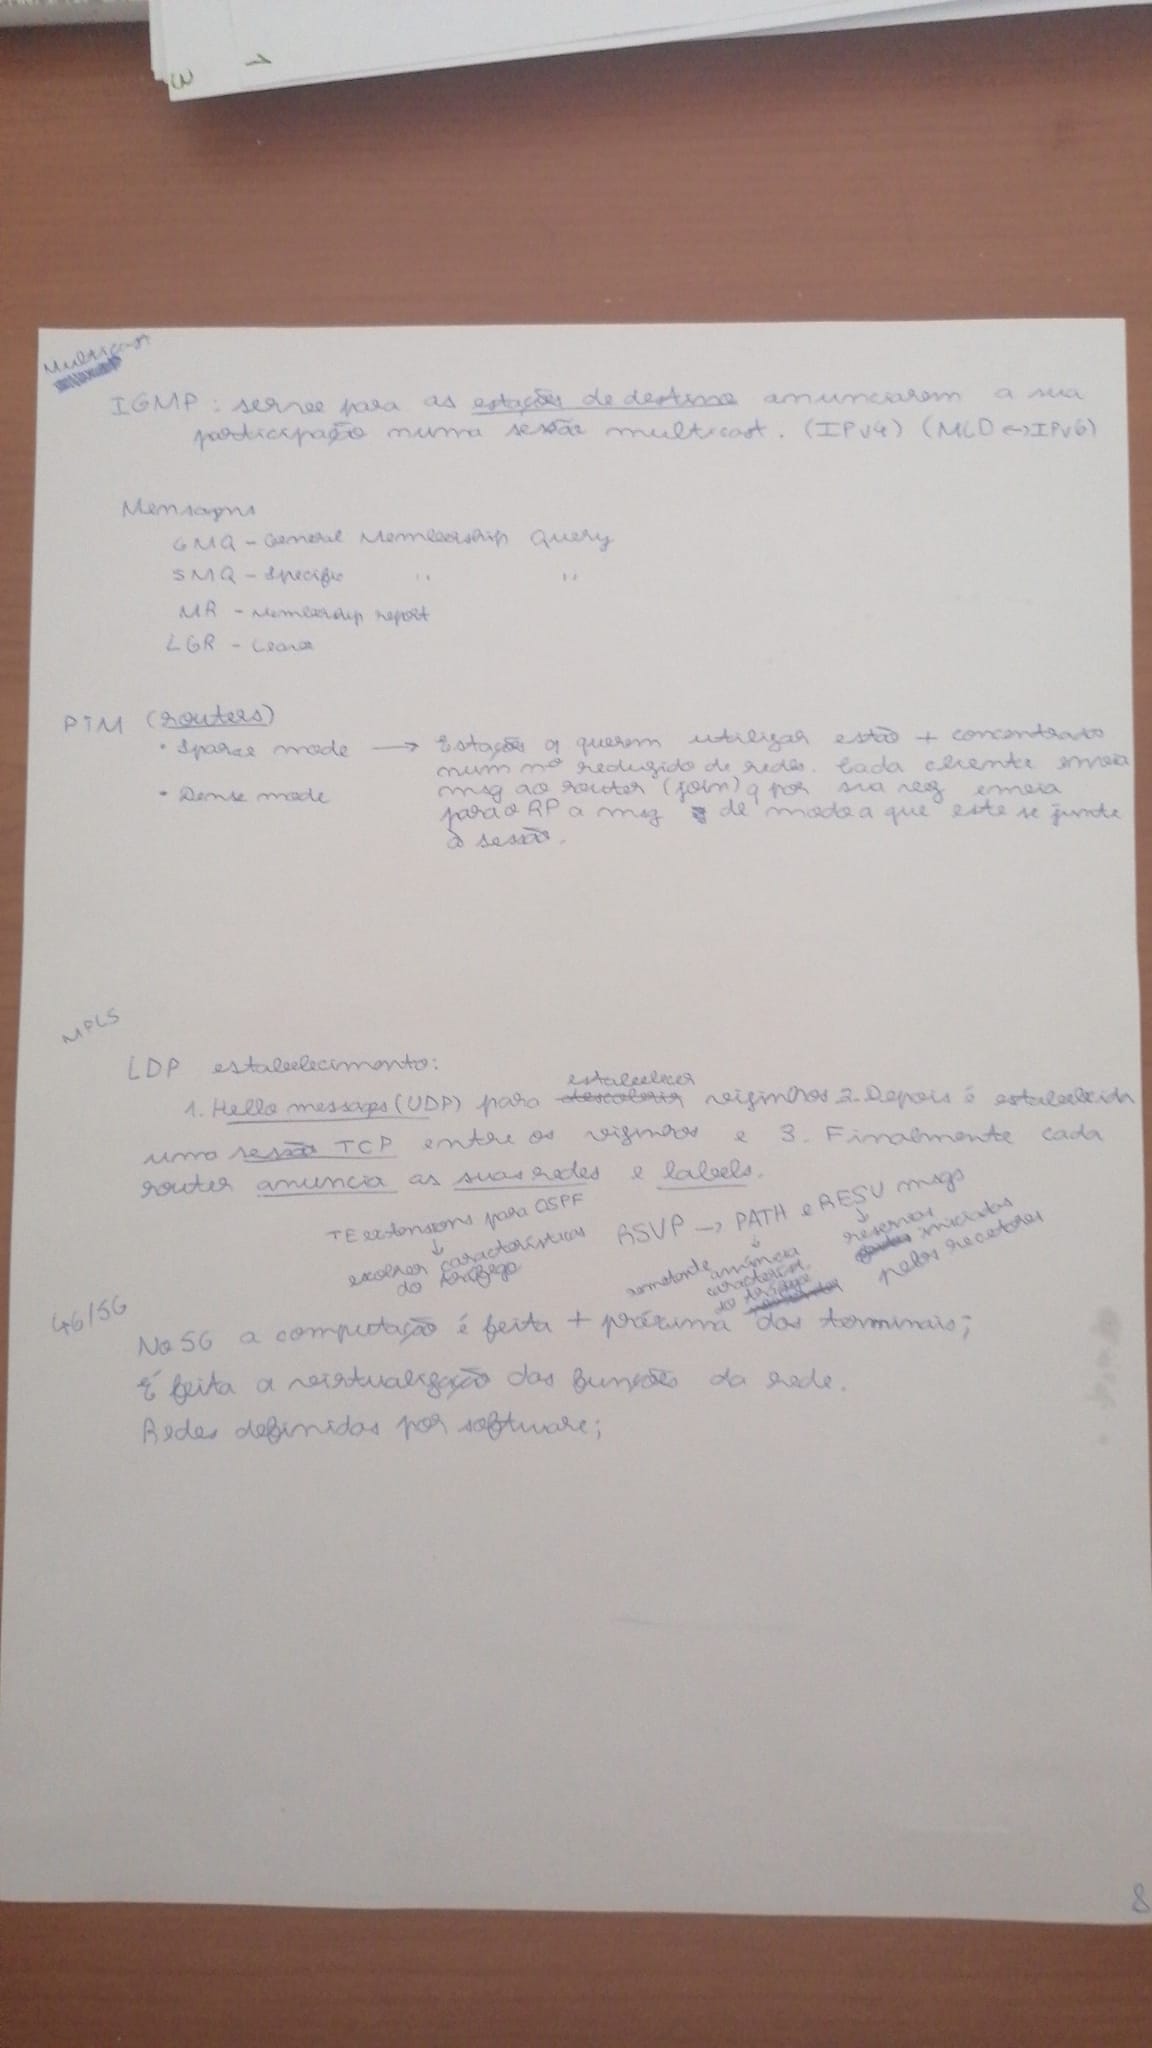 3 1
Multicast
IGMP: serve para as estações de destino anunciarem a sua
participação numa sessão multicast. (IPv4) (MLD <-> IPv6)
Mensagens
GMQ - General Membership Query
SMQ - Specific " "
MR - Membership report
LGR - Leave
PIM (routers)
• Sparse mode → Estações q querem utilizar estão + concentrado
num nº reduzido de redes. Cada cliente envia
• Dense mode msg ao router (join) q por sua vez envia
para o RP a msg de modo a que este se junte
à sessão.
MPLS
LDP estabelecimento:
estabelecer
1. Hello messages (UDP) para descobrir vizinhos 2. Depois é estabelecida
uma sessão TCP entre os vizinhos e 3. Finalmente cada
router anuncia as suas redes e labels.
TE extensions para OSPF
↓
escolher características
do tráfego
RSVP → PATH e RESV msgs
↓ ↓
remetente anúncia
característ.
do tráfego
reservas
iniciadas
pelos recetores
4G/5G
No 5G a computação é feita + próxima dos terminais;
É feita a virtualização das funções da rede.
Redes definidas por software;
8